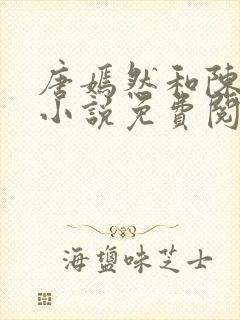 唐嫣然和陳
小說免費閱
海鹽味芝士